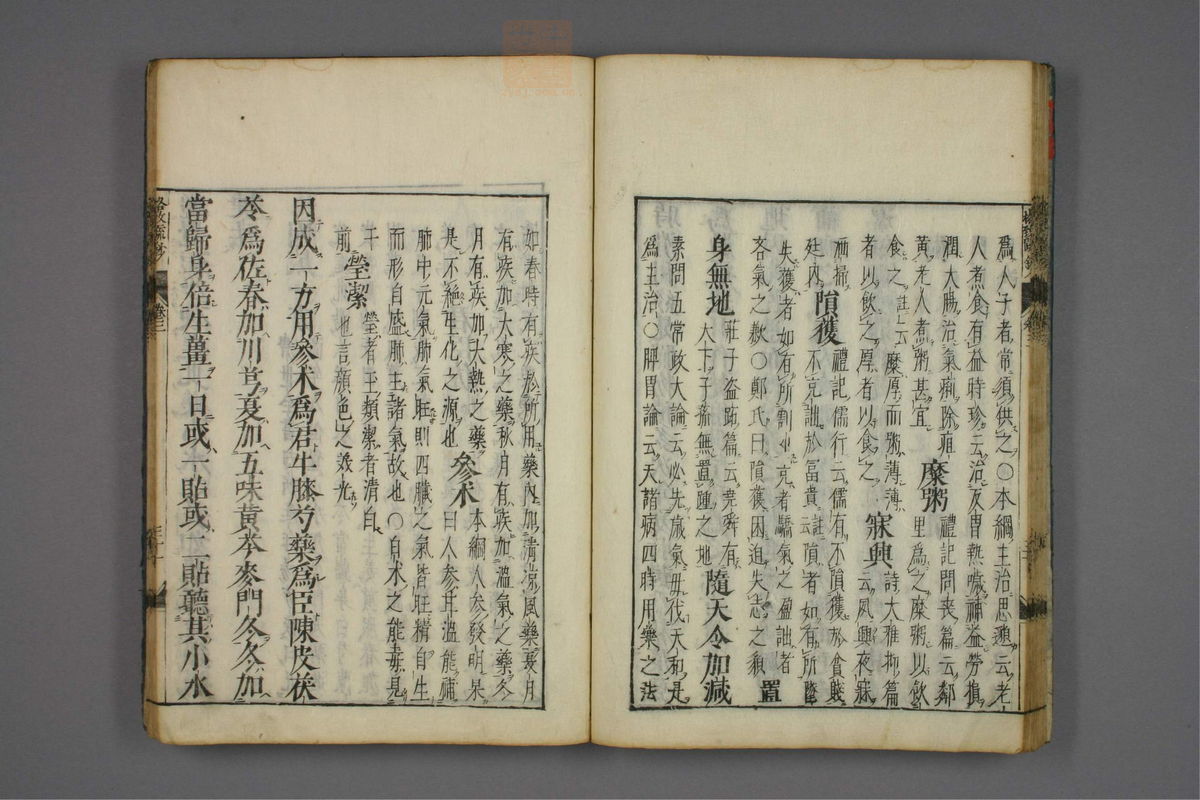 爲人子者常須供之○本綱主治思邈云老
人煮食有益時珍云治反胃熱噦補益勞損
潤大腸治氣痢除疸
黄老人煮粥甚宜 糜粥 禮記問喪篇云鄰里爲之糜粥以飲
食之註上云糜厚而粥薄薄
者以飲之厚者以食之 寐興 詩大雅抑篇云夙興夜寐
洒掃廷内 隕獲 禮記儒行云儒有不隕獲於貧賤
不充詘於冨貴註隕者如有所墜
失獲者如有所割刈充者驕氣之盈詘者
吝氣之歉○鄭氏曰隕獲困迫失志之貌 置
身無地 莊子盗跖篇云堯舜有天下子孫無置踵之地 隨天令加減
素問五常政大論云必先歳氣毋伐天和是
爲主治○脾胃論云天諸病四時用藥之法
如春時有疾於所用藥内加清凉風藥夏月
有疾加大寒之藥秋月有疾加温氣之藥冬
月有疾加大熱之藥
是不絶生化之源也 參朮 本綱人参發明杲曰人参甘温能補
肺中元氣肺氣旺則四臓之氣皆旺精自生
而形自盛肺主諸氣故也○白朮之能毒是
于前 瑩潔 瑩者玉類潔者清白也言顔色之媺光
因成一方用參朮爲君牛膝芍藥爲臣陳皮茯
苓爲佐春加川芎夏加五味黄芩麥門冬冬加
當歸身倍生薑一日或一貼或二貼聽其小水
卷三